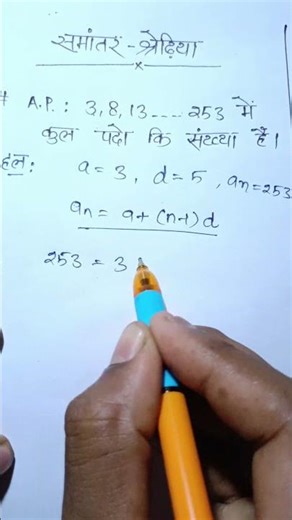 समांतर-श्रेढ़िया
# A.P.: 3, 8, 13 .... 253 में
कुल पदो कि संख्या हैं।
हल: a = 3, d = 5, an = 253
an = a + (n-1) d
253 = 3